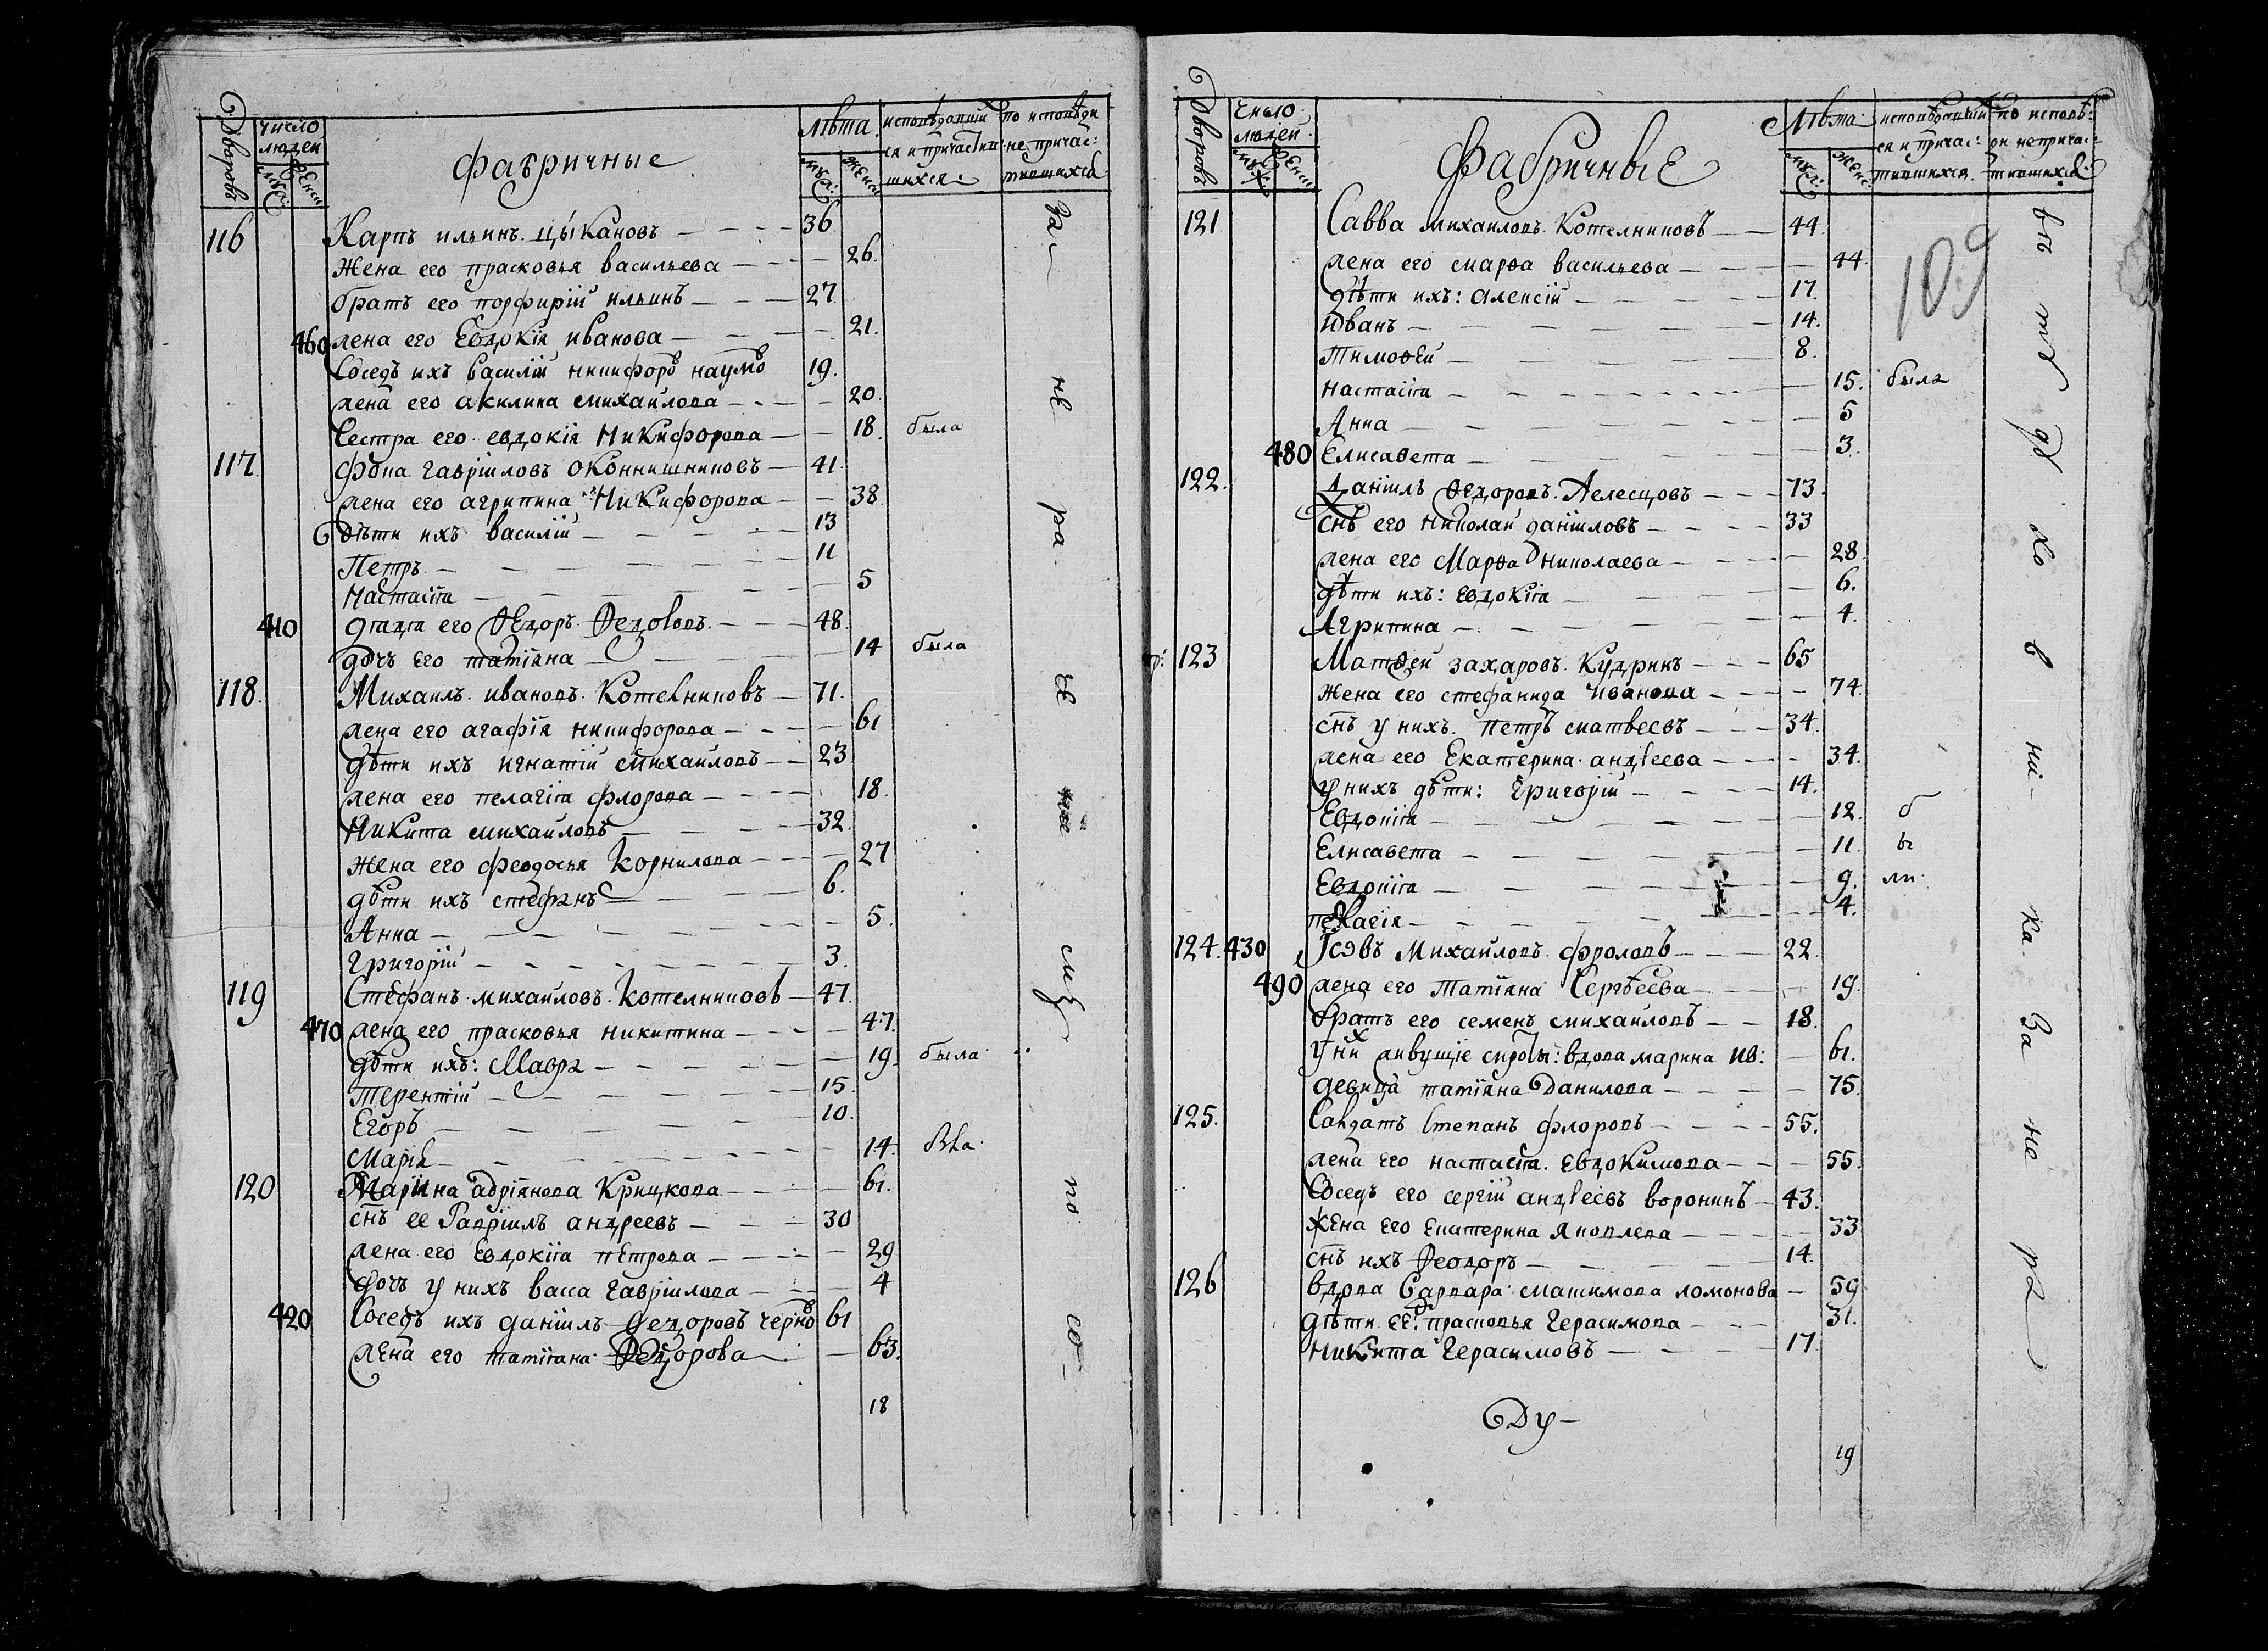 Дворовъ число людей муж: женс фабричные лѣта муж: женс исповѣдавши ся и причастив шихся: по исповѣди не причас: тившихся
116 Карпъ ильинъ цыкановъ 36
жена его прасковья васильева 26.
братъ его порфирій ильинъ 27
460 жена его Евдокія иванова 21.
Соседъ ихъ василій никифоръ наумо 19.
жена его акилина михайлова 20.
Сестра его евдокія Никифорова 18. была
117. гавріиловъ оконнишниковъ 41.
жена его агрипина Никифорова 38
дѣти ихъ василій 13
Петръ 11
настасія 5
410 дядя его Ѳедоръ Ѳедоровъ 48.
дочъ его татіяна 14 была
118. Михаилъ ивановъ Котелниковъ 71.
жена его агафія никифорова 61
дѣти ихъ игнатій михаиловъ 23
жена его пелагія флорова 18.
Никита михаиловъ 32.
жена его феодосья Корнилова 27
дѣти ихъ стефанъ 6.
Анна 5.
григорій 3.
119 Стефанъ михаиловъ Котелниковъ 47.
470 жена его прасковья никитина 47.
дѣти ихъ: Мавра 19. была
терентій 15.
Егоръ 10.
Марія 14. бла
120 Марина адріянова Крицкова 61.
снъ ее Гавріилъ андреевъ 30
жена его Евдокія пЕтрова 29
дочъ у нихъ васса гавріилова 4
420 Соседъ ихъ даніилъ Ѳедоровъ черно 61
жена его татіана Ѳедорова 63.
18
за не ра че ніе мъ по со
Дворовъ число людей муж женс Фабричные Лѣта: муж: женс: исповѣдавши ся и причас: тившихся. по исповѣ: ди не причас: тившихся:
109
121 Савва михаиловъ Котелниковъ 44.
жена его марѳа васильева 44.
дѣти ихъ: алексій 17.
Иванъ 14.
Тимоѳей 8.
настасія 15. была
Анна 5
480 Елисавета 3.
122. Даніилъ Ѳедоровъ 73.
снъ его николай даніиловъ 33
жена его Марѳа николаева 28.
дѣти ихъ: евдокія 6.
Агрипина 4.
123 Матѳей захаровъ Кудринъ 65
жена его стефанида иванова 74.
снъ у нихъ петръ матвеевъ 34.
жена его Екатерина андреева 34.
у нихъ дѣти: григорій 14.
Евдокія 12. б
Елисавета 11. ы
Евдокія 9. ли
пелагія 4.
124. 430 Іовъ Михайловъ фроловъ 22.
490 жена его татіяна Сергѣева 19.
братъ его семенъ михаиловъ 18.
у них живущіе сироты: вдова марина ив: 61.
девица татіяна Данилова 75.
125. Салдатъ Степанъ флоровъ 55.
жена его настасія евдокимова 55.
Соседъ его сергій андреевъ воронинъ 43.
жена его екатерина яковлева 33
снъ ихъ Ѳеодоръ 14.
126 вдова варвара максимова ломонова 59
дѣти ее: прасковья герасимова 31.
никита герасимовъ 17
Ду
19
въ от дѣ хо в ни ка за не ра